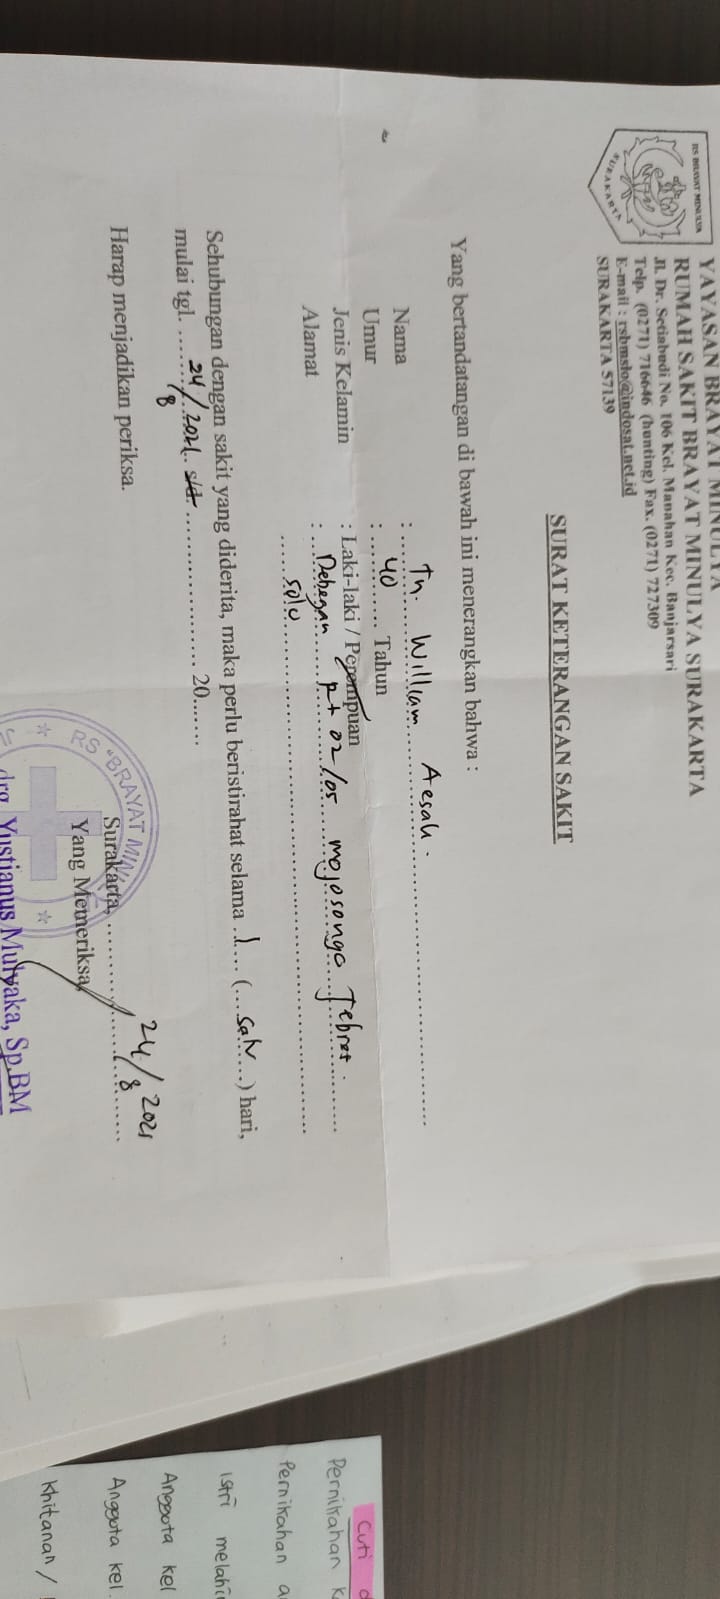 YAYASAN BRAYAT MINULYA
RUMAH SAKIT BRAYAT MINULYA SURAKARTA
Jl. Dr. Setiabudi No. 106 Kel. Manahan Kec. Banjarsari
Telp. (0271) 716646 (hunting) Fax. (0271) 727309
E-mail : rsbmslo@indosat.net.id
SURAKARTA 57139
RS BRAYAT MINULYA
SURAKARTA
SURAT KETERANGAN SAKIT
Yang bertandatangan di bawah ini menerangkan bahwa :
Nama : Tn. William
Umur : 40 Tahun
Jenis Kelamin : Laki-laki / Perempuan
Alamat : Debegan Rt 02/05 mojosongo Jebres.
Solo
Sehubungan dengan sakit yang diderita, maka perlu beristirahat selama 1 (satu) hari,
mulai tgl. 24/8/2021 s/d. 20
Harap menjadikan periksa.
Surakarta, 24/8 2021
Yang Memeriksa,
RS "BRAYAT MIN
drg. Yustianus Mulyaka, Sp.BM
Cuti
Pernikahan
Pernikahan
Istri
Anggota kel
Anggota kel.
Khitanan /